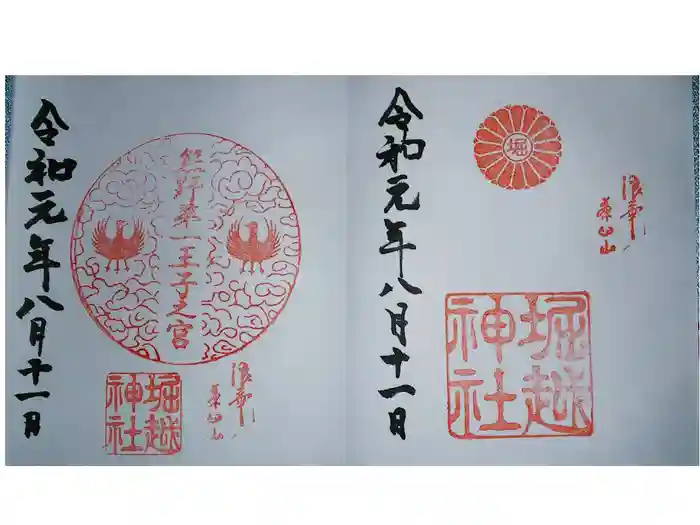 令和元年八月十一日
堀
浪華
茶臼山
堀越
神社
熊野第一王子之宮
令和元年八月十一日
浪華
茶臼山
堀越
神社